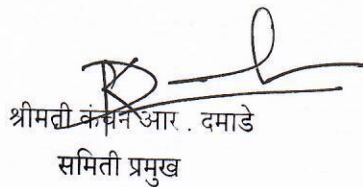 श्रीमती कंचन आर . दमाडे
समिती प्रमुख